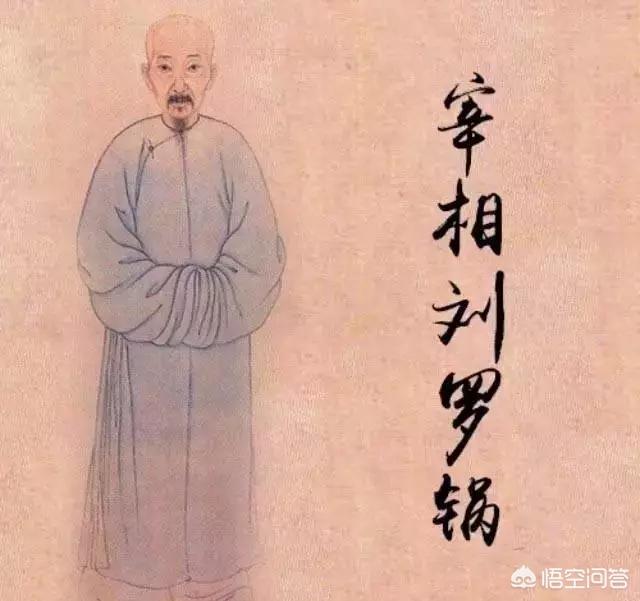 宰相刘罗锅
悟空问答